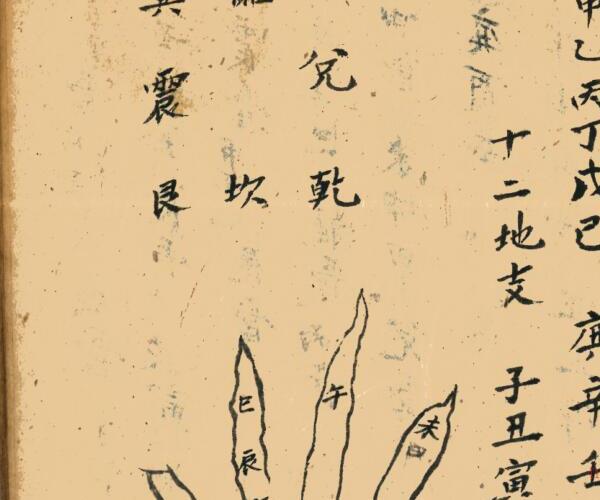 甲乙丙丁戊己 庚辛壬
十二地支 子丑寅
兌 乾
坎
巽 震 艮
未
午
巳 辰